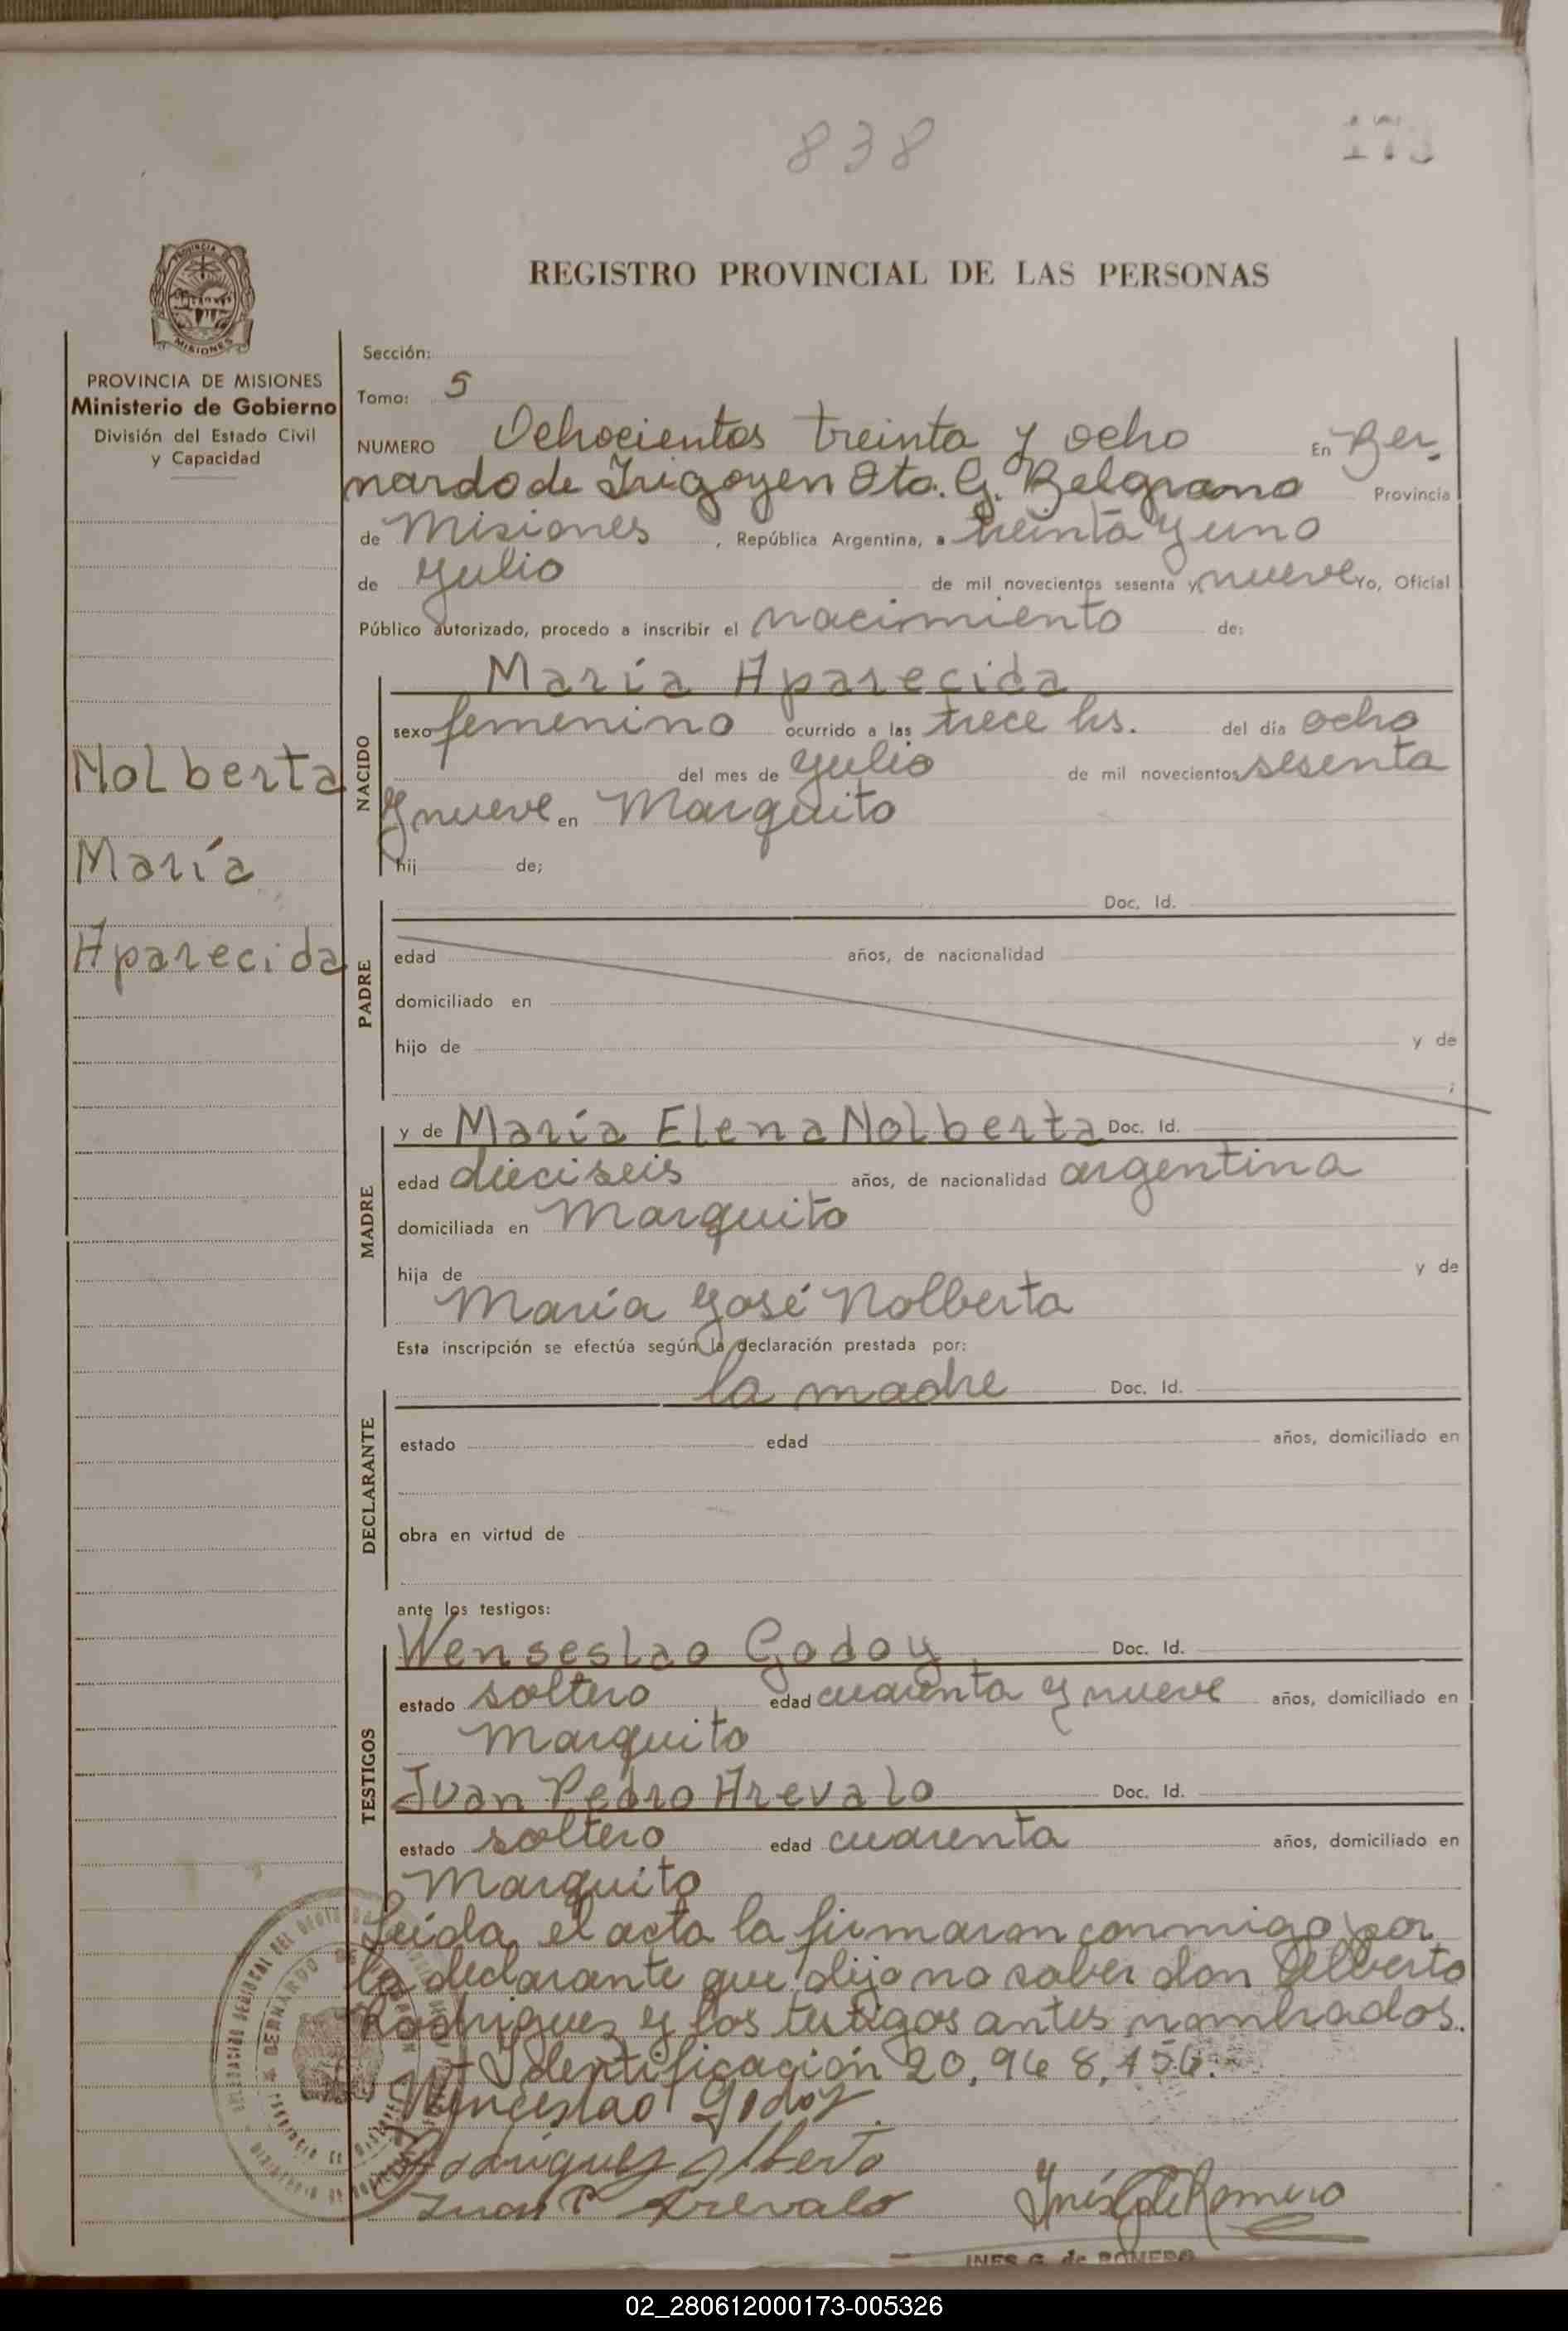 838
173
REGISTRO PROVINCIAL DE LAS PERSONAS
PROVINCIA
MISIONES
PROVINCIA DE MISIONES
Ministerio de Gobierno
División del Estado Civil
y Capacidad
Nolberta
María
Aparecida
Sección:
Tomo: 5
NUMERO Ochocientos treinta y ocho En Ber-
nardo de Irigoyen Dto. G. Belgrano Provincia
de Misiones, República Argentina, a treinta y uno
de Julio de mil novecientos sesenta y nueve Yo, Oficial
Público autorizado, procedo a inscribir el nacimiento de:
NACIDO
María Aparecida
sexo femenino ocurrido a las trece hs. del día ocho
del mes de Julio de mil novecientos sesenta
y nueve en Marquito
hij de;
PADRE
Doc. Id.
edad años, de nacionalidad
domiciliado en
hijo de y de
;
MADRE
y de María Elena Nolberta Doc. Id.
edad dieciseis años, de nacionalidad argentina
domiciliada en Marquito
hija de y de
María José Nolberta
Esta inscripción se efectúa según la declaración prestada por:
DECLARANTE
la madre Doc. Id.
estado edad años, domiciliado en
obra en virtud de
ante los testigos:
TESTIGOS
Wenseslao Godoy Doc. Id.
estado soltero edad cuarenta y nueve años, domiciliado en
Marquito
Juan Pedro Arevalo Doc. Id.
estado soltero edad cuarenta años, domiciliado en
Marquito
Leída el acta la firmaron conmigo por
la declarante que dijo no saber don Alberto
Rodriguez y los testigos antes nombrados.
Identificación 20,968,156.
Wenceslao Godoy
Rodriguez Alberto
Juan P Arevalo
Inés G de Romero
INES G. de ROMERO
02_280612000173-005326